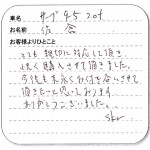 車名 サーブ 9-5 ワゴン
お名前 佐倉
お客様よりひとこと
とても親切に対応して頂き
快く購入させて頂きました。
今後も末永くお付き合いさせて
頂きたいと思っております
ありがとうございました。